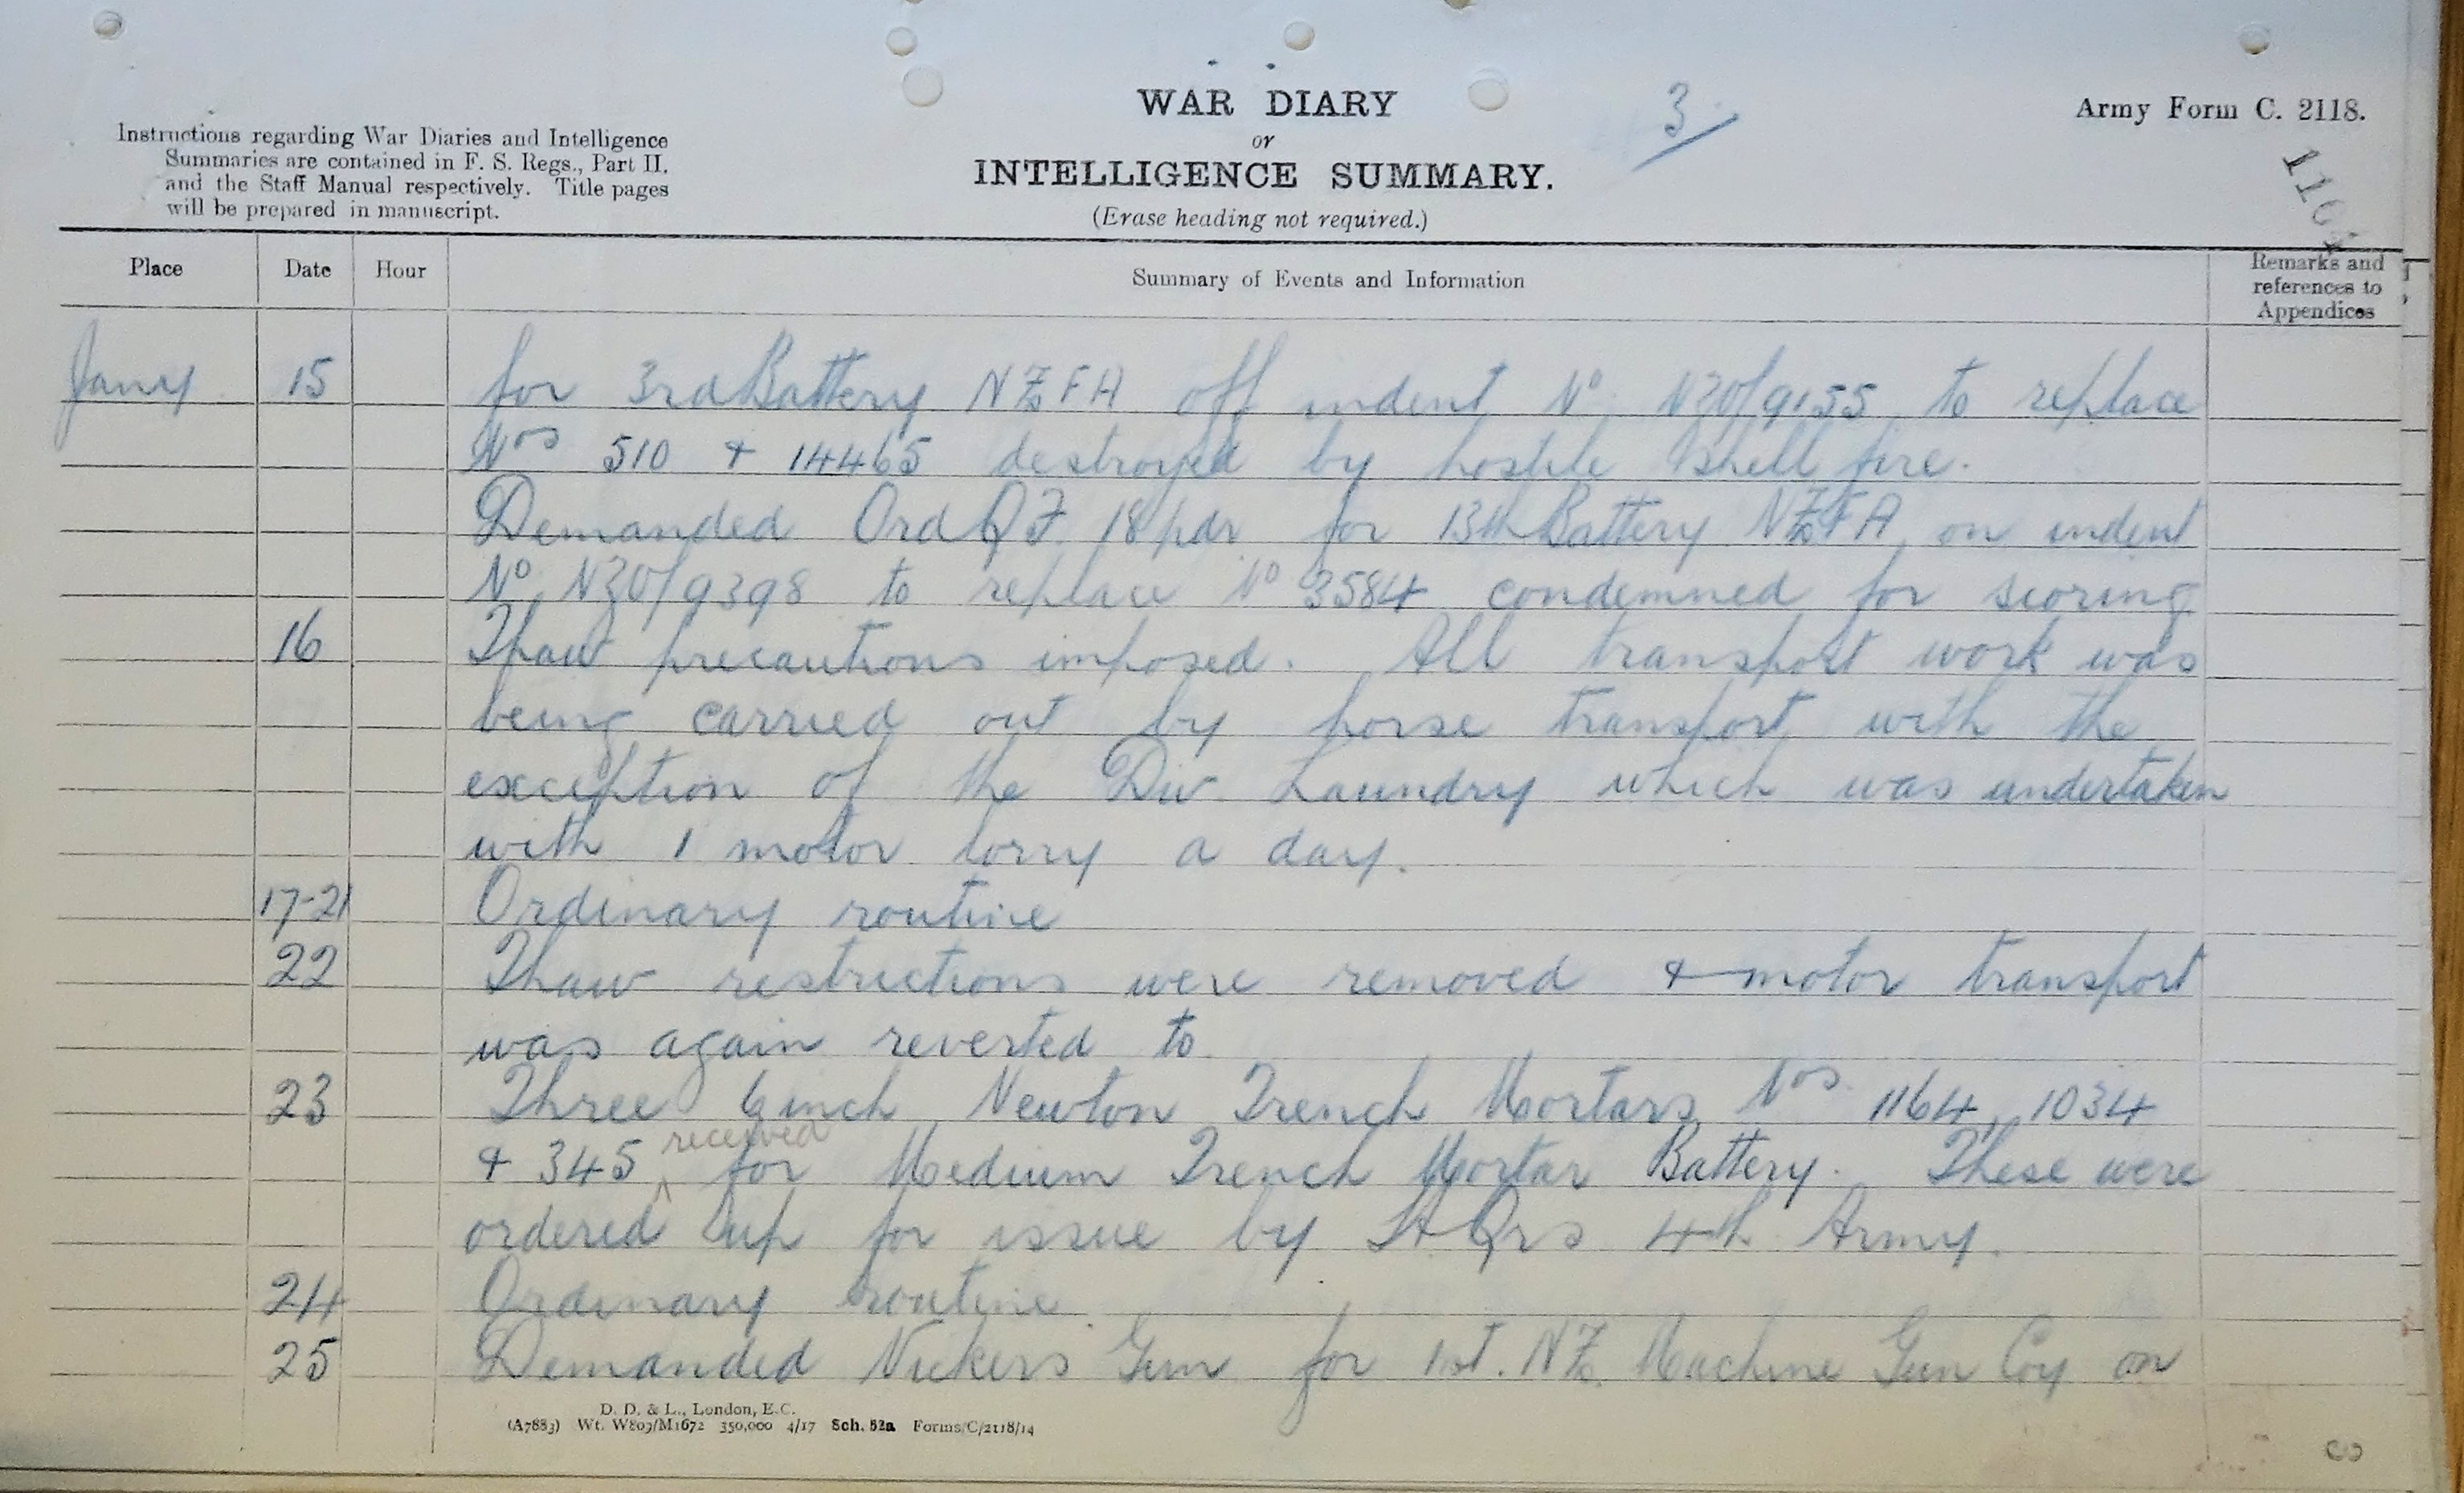 WAR DIARY
or
INTELLIGENCE SUMMARY.
(Erase heading not required.)
3
Army Form C. 2118.
Instructions regarding War Diaries and Intelligence
Summaries are contained in F. S. Regs., Part II.
and the Staff Manual respectively. Title pages
will be prepared in manuscript.
Place Date Hour Summary of Events and Information Remarks and
references to
Appendices
Jany 15 for 3rd Battery NZFA off indent No. NZO/9155 to replace
Nos 510 & 14465 destroyed by hostile shell fire.
Demanded Ord QF 18 pdr for 13th Battery NZFA on indent
No NZO/9398 to replace No 3584 condemned for scoring
16 Thaw precautions imposed. All transport work was
being carried out by horse transport with the
exception of the Div Laundry which was undertaken
with 1 motor lorry a day.
17-21 Ordinary routine
22 Thaw restrictions were removed & motor transport
was again reverted to
23 Three 6 inch Newton Trench Mortars Nos 1164, 1034
& 345 received for Medium Trench Mortar Battery. These were
ordered up for issue by H Qrs 4th Army.
24 Ordinary routine
25 Demanded Vickers Gun for 1st. NZ. Machine Gun Coy on
D. D. & L., London, E.C.
(A7883) Wt. W809/M1672 350,000 4/17 Sch. 52a Forms/C/2118/14